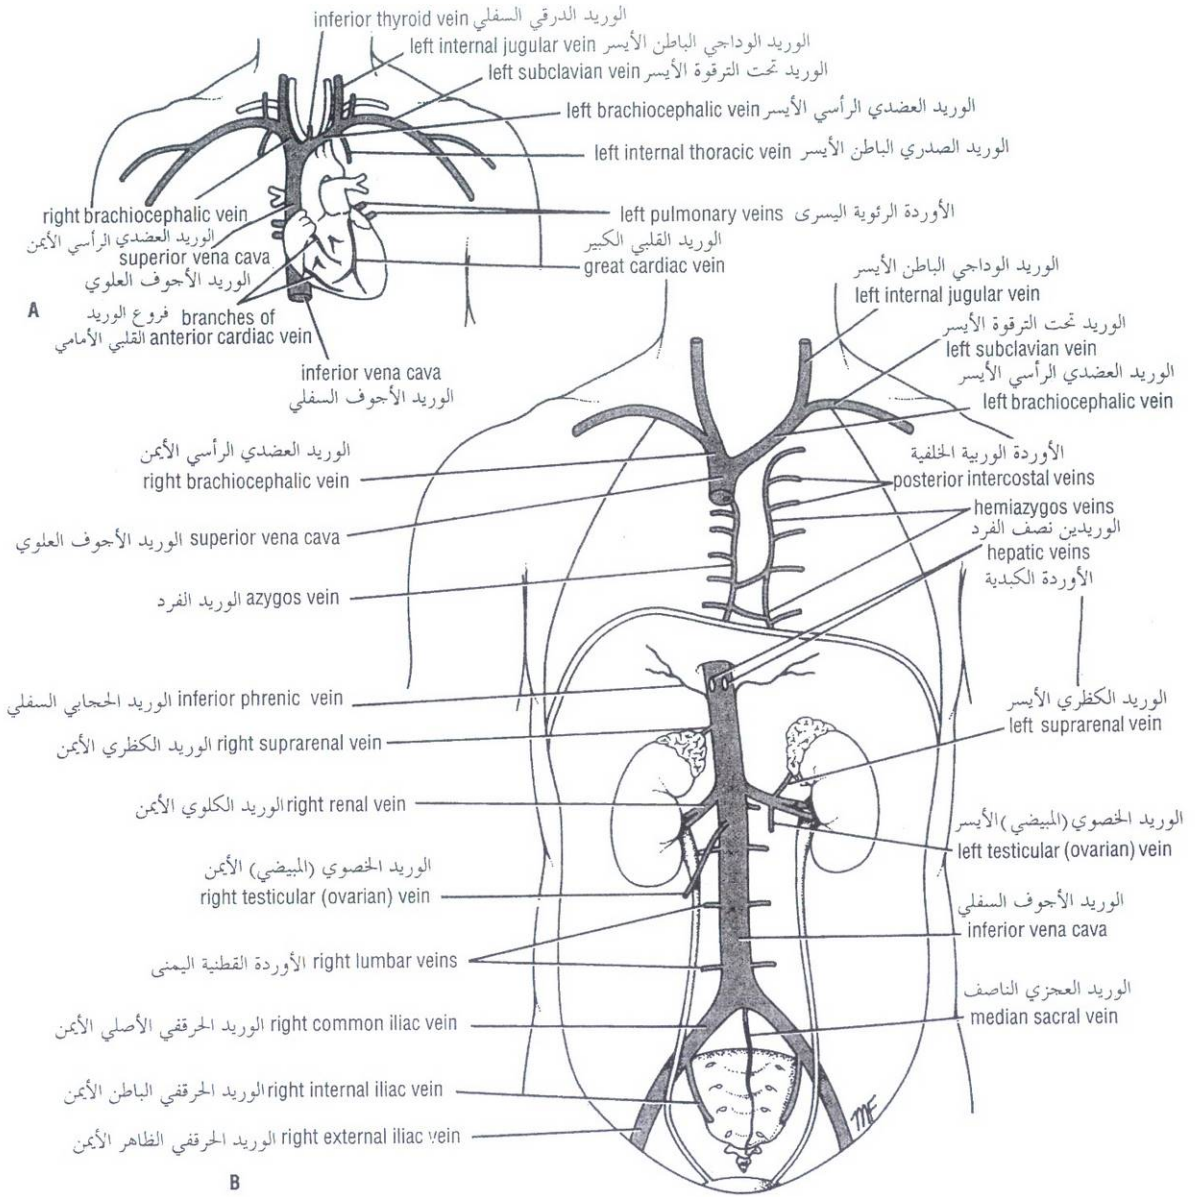 inferior thyroid vein الوريد الدرقي السفلي
left internal jugular vein الوريد الوداجي الباطن الأيسر
left subclavian vein الوريد تحت الترقوة الأيسر
left brachiocephalic vein الوريد العضدي الرأسي الأيسر
left internal thoracic vein الوريد الصدري الباطن الأيسر
right brachiocephalic vein
الوريد العضدي الرأسي الأيمن
superior vena cava
الوريد الأجوف العلوي
left pulmonary veins الأوردة الرئوية اليسرى
الوريد القلبي الكبير
great cardiac vein
A
branches of فروع الوريد
anterior cardiac vein القلبي الأمامي
inferior vena cava
الوريد الأجوف السفلي
الوريد الوداجي الباطن الأيسر
left internal jugular vein
الوريد تحت الترقوة الأيسر
left subclavian vein
الوريد العضدي الرأسي الأيسر
left brachiocephalic vein
الوريد العضدي الرأسي الأيمن
right brachiocephalic vein
الأوردة الوربية الخلفية
posterior intercostal veins
hemiazygos veins
الوريدين نصف الفرد
hepatic veins
الأوردة الكبدية
superior vena cava الوريد الأجوف العلوي
azygos vein الوريد الفرد
inferior phrenic vein الوريد الحجابي السفلي
right suprarenal vein الوريد الكظري الأيمن
الوريد الكظري الأيسر
left suprarenal vein
right renal vein الوريد الكلوي الأيمن
الوريد الخصوي (المبيضي) الأيسر
left testicular (ovarian) vein
الوريد الخصوي (المبيضي) الأيمن
right testicular (ovarian) vein
الوريد الأجوف السفلي
inferior vena cava
right lumbar veins الأوردة القطنية اليمنى
الوريد العجزي الناصف
median sacral vein
right common iliac vein الوريد الحرقفي الأصلي الأيمن
right internal iliac vein الوريد الحرقفي الباطن الأيمن
right external iliac vein الوريد الحرقفي الظاهر الأيمن
MF
B